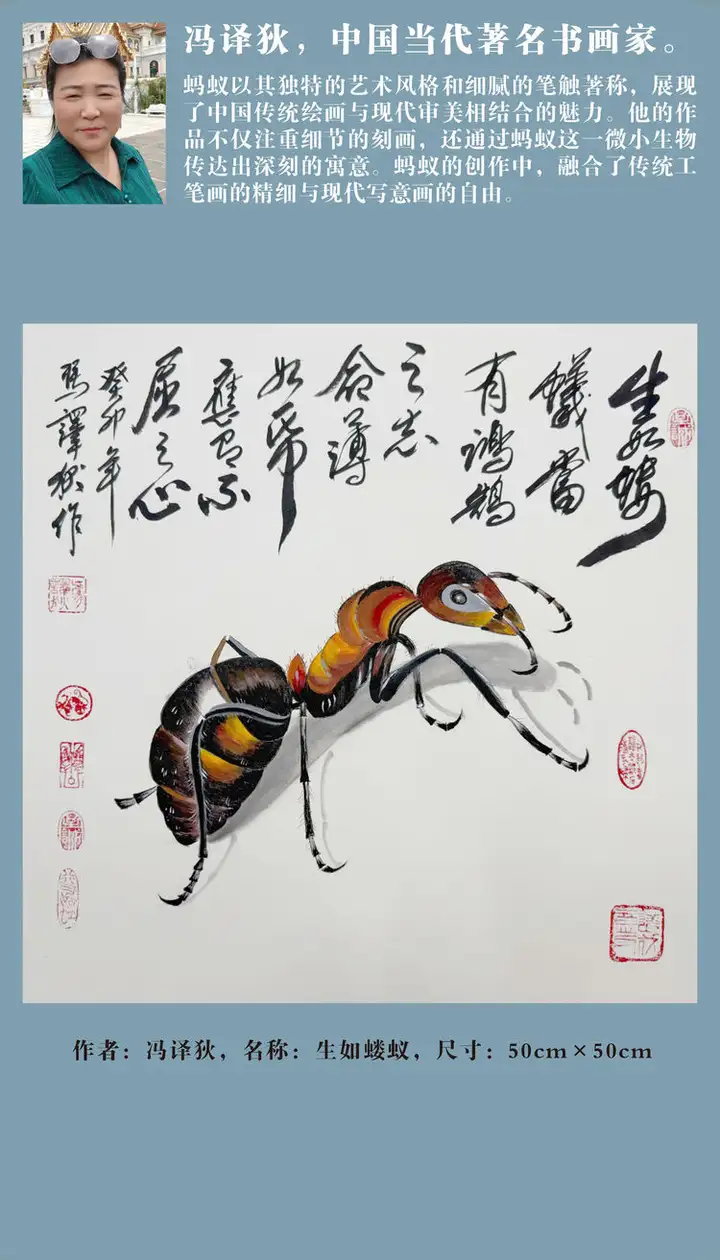 冯译狄，中国当代著名书画家。
蚂蚁以其独特的艺术风格和细腻的笔触著称，展现
了中国传统绘画与现代审美相结合的魅力。他的作
品不仅注重细节的刻画，还通过蚂蚁这一微小生物
传达出深刻的寓意。蚂蚁的创作中，融合了传统工
笔画的精细与现代写意画的自由。
生如螻
蟻當
有鴻鵠
之志
命薄
如帋
應有不
屈之心
癸卯年
馮譯狄作
作者：冯译狄，名称：生如蝼蚁，尺寸：50cm×50cm